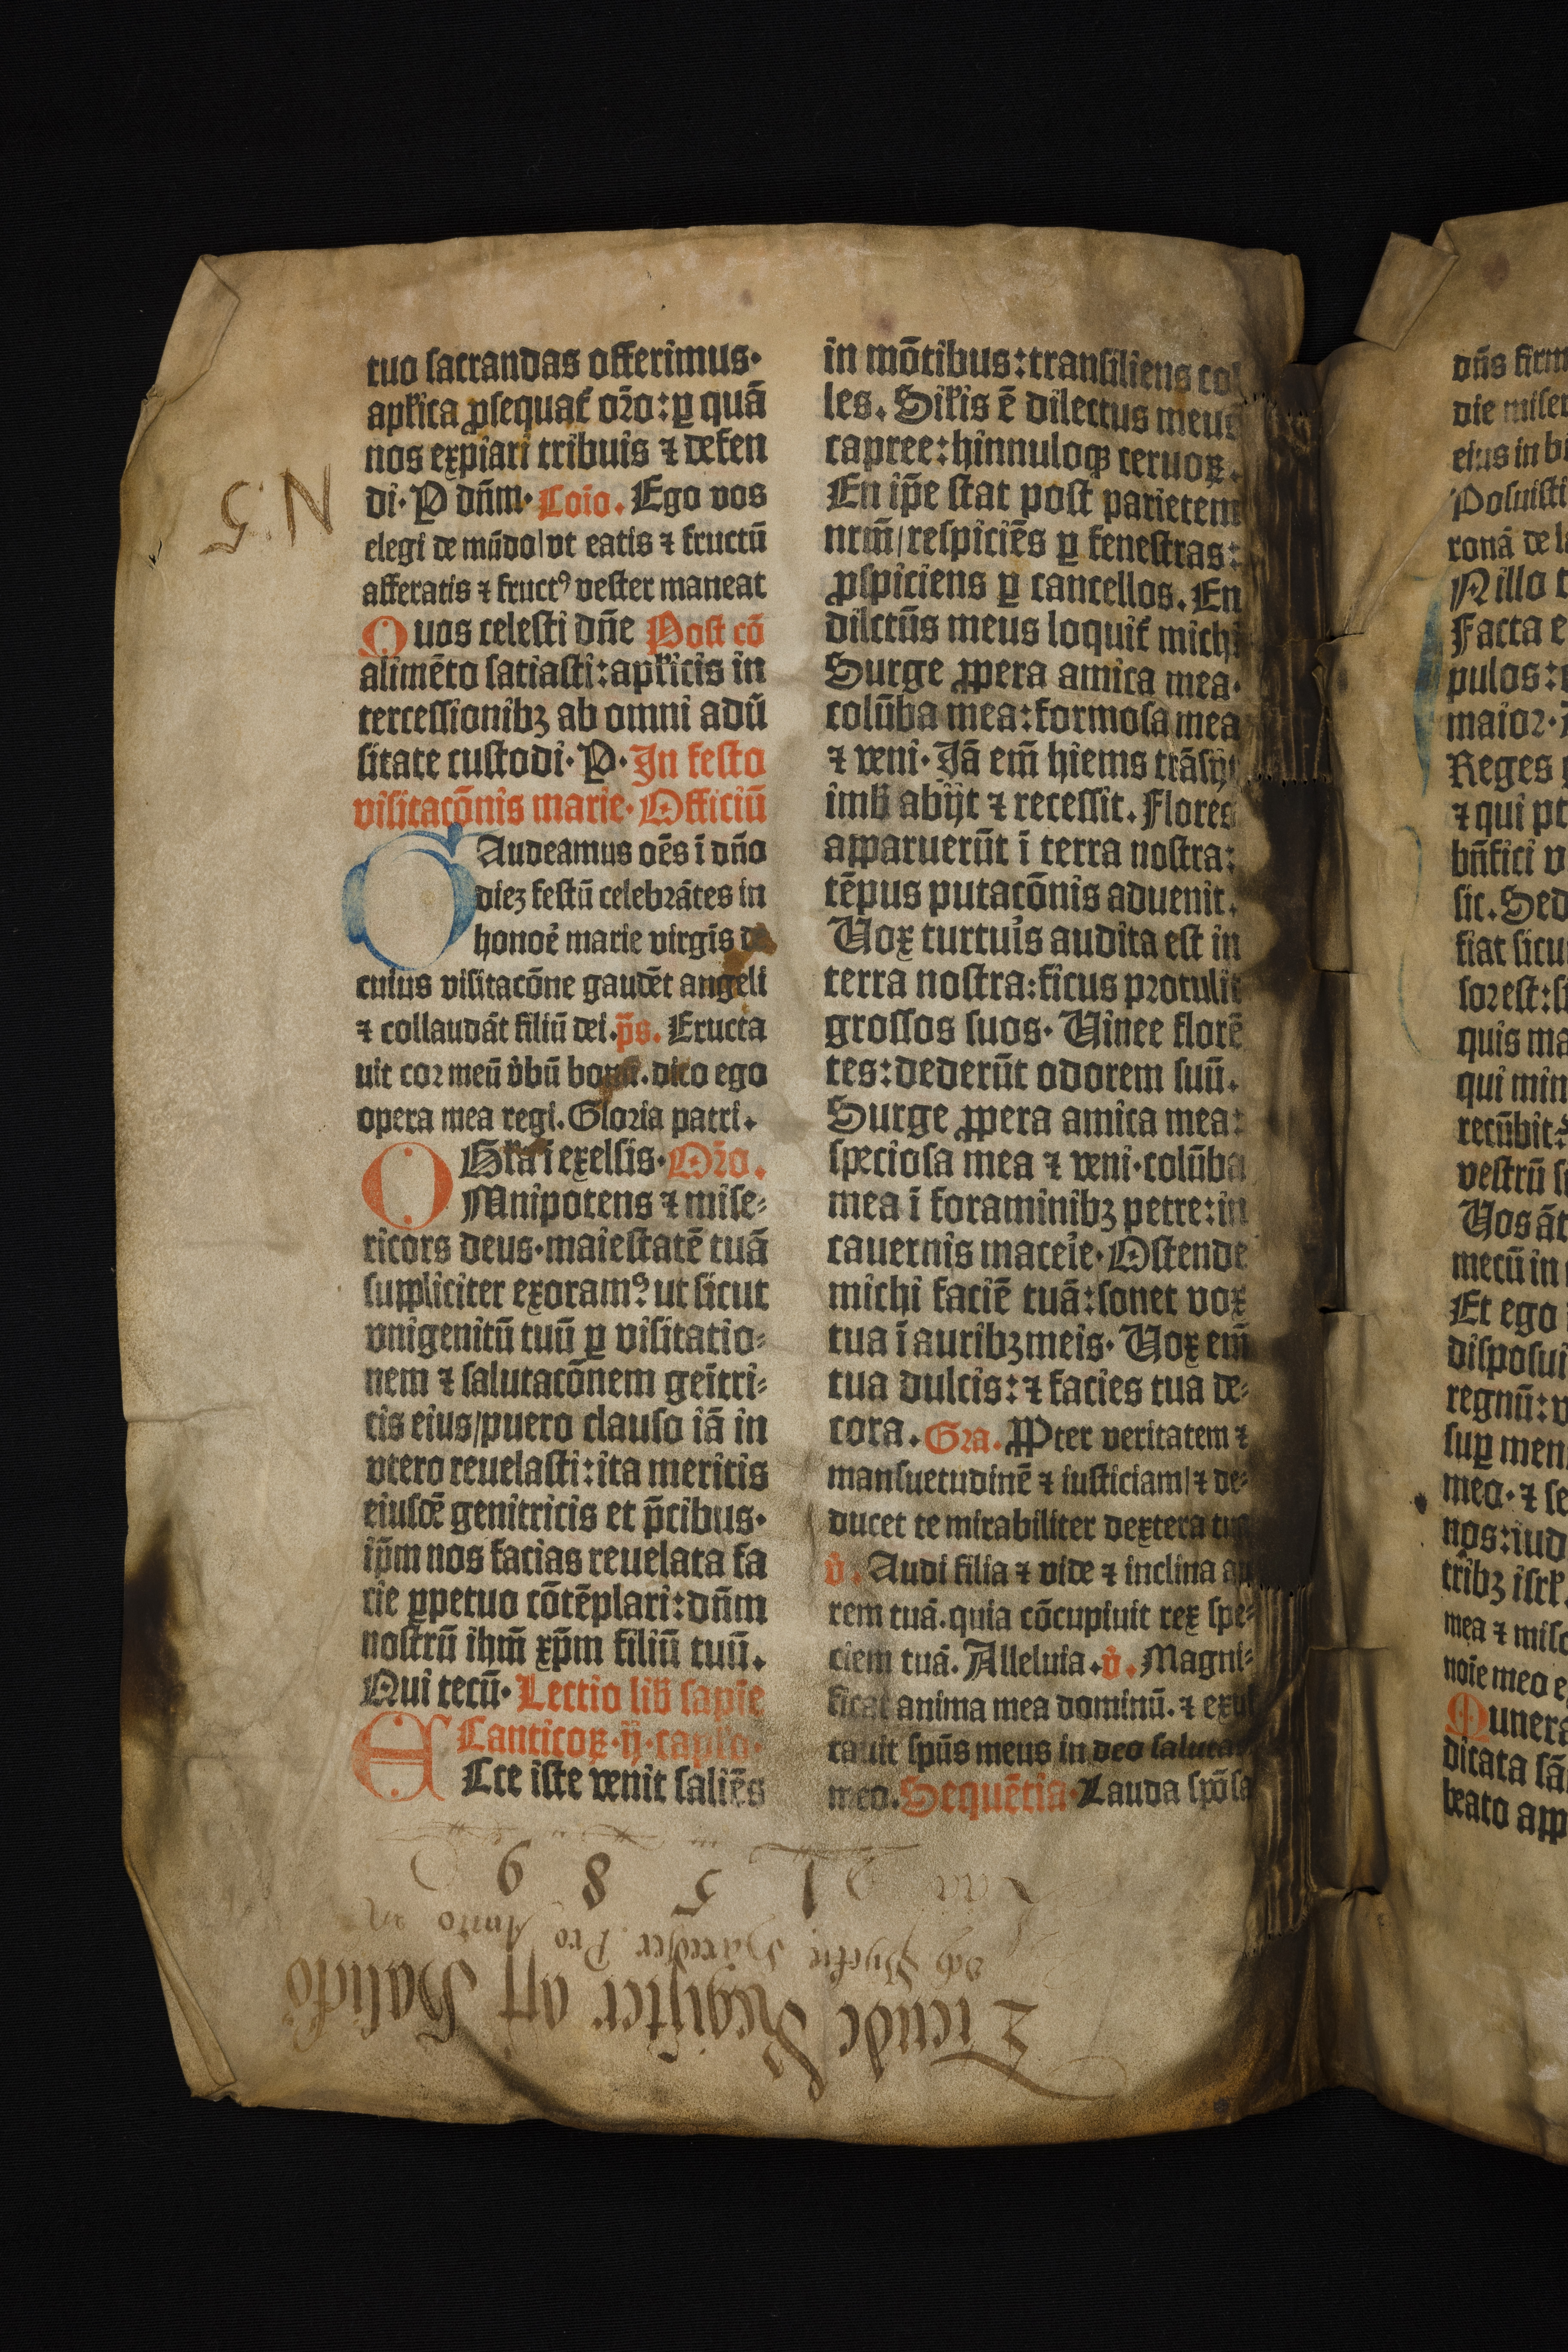 tuo sacrandas offerimus·
apl̃ica ꝓsequat᷑ or̃o: ꝑ quã
nos expiari tribuis ⁊ defen
di· P dñm· Cõio. Ego vos
elegi de mũdo/vt eatis ⁊ fructũ
afferatis ⁊ fructꝰ vester maneat
Quos celesti dñe Post cõ
alimẽto satiasti: aplĩcis in
tercessionibꝫ ab omni adũ
sitate custodi· P· In festo
visitacõnis marie· Officiũ
GAudeamus oẽs ĩ dño
dieꝫ festũ celebrãtes in
honoẽ marie virgĩs de
cuius visitacõne gaudẽt angeli
⁊ collaudãt filiũ dei. p̃s. Eructa
uit cor meũ v̾bũ bonũ. dico ego
opera mea regi. Gloria patri.
Gl̃ia ĩ exelsis· Or̃o.
OMnipotens ⁊ mise⸗
ricors deus· maiestatẽ tuã
suppliciter exoramꝰ ut sicut
vnigenitũ tuũ ꝑ visitatio⸗
nem ⁊ salutacõnem geĩtri⸗
cis eius/puero clauso iã in
vtero reuelasti: ita meritis
eiusdẽ genitricis et p̃cibus·
ip̃m nos facias reuelata fa
cie ꝑpetuo cõtẽplari: dñm
nostrũ ihm̃ xp̃m filiũ tuũ.
Qui tecũ· Lectio lib̃ sapie
Canticoꝝ· ij· caplo·
ECce iste venit saliẽs
in mõtibus: transiliens col
les. Sil̃is ẽ dilectus meus
capree: hinnuloqꝫ ceruoꝝ.
En ip̃e stat post parietem
nrm̃/respiciẽs ꝑ fenestras:
ꝓspiciens ꝑ cancellos. En
dilctũs meus loquit᷑ michi
Surge ꝓpera amica mea·
colũba mea: formosa mea
⁊ veni· Jã em̃ hiems trãsijt
imb̃ abijt ⁊ recessit. Flores
apparuerũt ĩ terra nostra:
tẽpus putacõnis aduenit.
Vox turtuĩs audita est in
terra nostra: ficus protulit
grossos suos· Vinee florẽ
tes: dederũt odorem suũ.
Surge ꝓpera amica mea:
speciosa mea ⁊ veni· colũba
mea ĩ foraminibꝫ petre: in
cauernis maceĩe· Ostende
michi faciẽ tuã: sonet vox
tua ĩ auribꝫ meis· Vox em̃
tua dulcis: ⁊ facies tua de⸗
cora. Gra. PꝒter veritatem ⁊
mansuetudinẽ ⁊ iusticiam/⁊ de⸗
ducet te mirabiliter dextera tua
v̾. Audi filia ⁊ vide ⁊ inclina au
rem tuã. quia cõcupiuit rex spe⸗
ciem tuã. Alleluia. v̾. Magni⸗
ficat anima mea dominũ. ⁊ exul
tauit spũs meus in deo saluta
meo. Sequẽtia· Lauda spõsa
N: 5
Tiende Register aff
Pro Anno
1 5 8 9
dñs firm
die miser
eius in bi
Posuisti
ronã de la
Nillo t
Facta e
pulos:
maior·
Reges
⁊ qui pt
bñfici v
sic. Sed
fiat sicu
sor est: s
quis ma
qui min
recũbit:
vestrũ s
Vos ãt
mecũ in
Et ego
disposui
regnũ: v
suꝑ men
mea· ⁊ se
nos: iud
tribꝫ isrl̃.
mea ⁊ mi
noĩe meo e
Munera
dicata sã
beato app